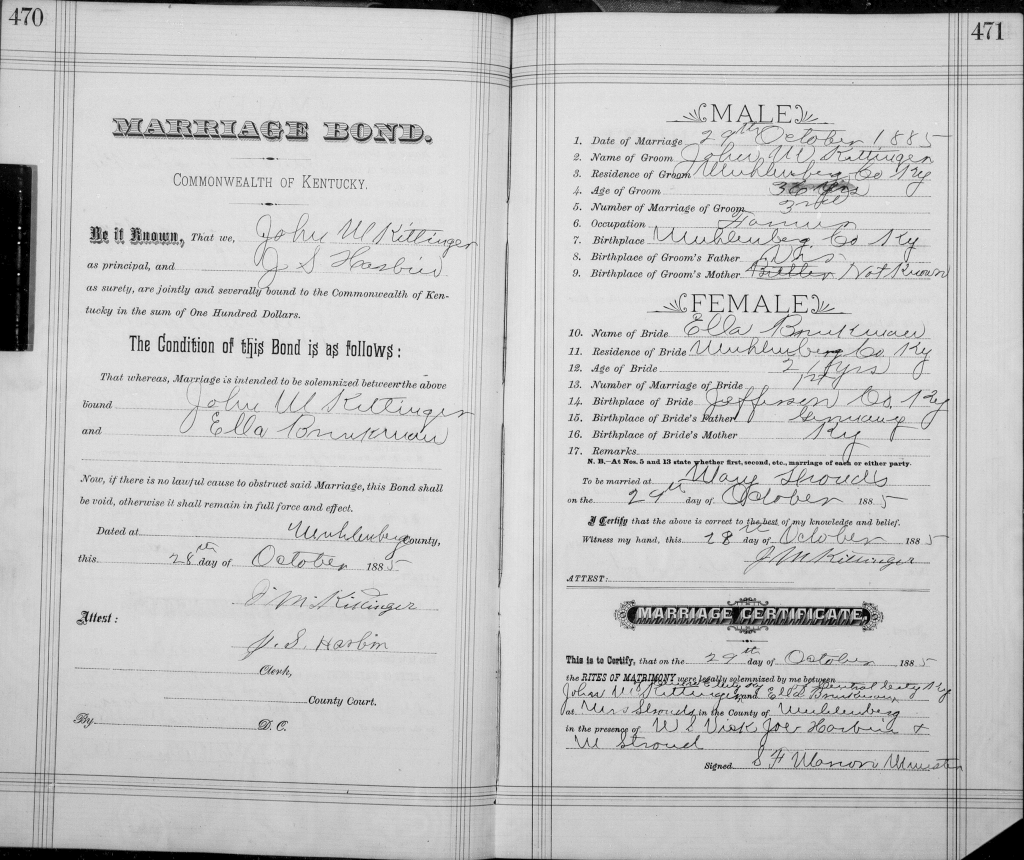 470
MARRIAGE BOND.
COMMONWEALTH OF KENTUCKY.
Be it Known, That we, John M Kittinger
as principal, and J S Harbin
as surety, are jointly and severally bound to the Commonwealth of Ken-
tucky in the sum of One Hundred Dollars.
The Condition of this Bond is as follows:
That whereas, Marriage is intended to be solemnized between the above
bound John M Kittinger
and Ella Brinkman
Now, if there is no lawful cause to obstruct said Marriage, this Bond shall
be void, otherwise it shall remain in full force and effect.
Dated at Muhlenberg County,
this 28th day of October 1885
J M Kittinger
Attest:
J. S. Harbin
Clerk,
County Court.
By D. C.
471
MALE
1. Date of Marriage 29th October 1885
2. Name of Groom John M Kittinger
3. Residence of Groom Muhlenberg Co Ky
4. Age of Groom 36 yrs
5. Number of Marriage of Groom 3rd
6. Occupation Farmer
7. Birthplace Muhlenberg Co Ky
8. Birthplace of Groom's Father
9. Birthplace of Groom's Mother Not Known
FEMALE
10. Name of Bride Ella Brinkman
11. Residence of Bride Muhlenberg Co Ky
12. Age of Bride yrs
13. Number of Marriage of Bride 1st
14. Birthplace of Bride Jefferson Co. Ky
15. Birthplace of Bride's Father Germany
16. Birthplace of Bride's Mother Ky
17. Remarks
N. B.—At Nos. 5 and 13 state whether first, second, etc., marriage of each or either party.
To be married at Mary Strouds
on the 29th day of October 1885
I Certify that the above is correct to the best of my knowledge and belief.
Witness my hand, this 28th day of October 1885
J M Kittinger
ATTEST:
MARRIAGE CERTIFICATE.
This is to Certify, that on the 29th day of October 1885
the RITES OF MATRIMONY were legally solemnized by me between
John M Kittinger and Ella Brinkman
at Mrs Strouds in the County of Muhlenberg
in the presence of W S Vick Joe Harbin +
M Stroud
Signed S F Marion Minister